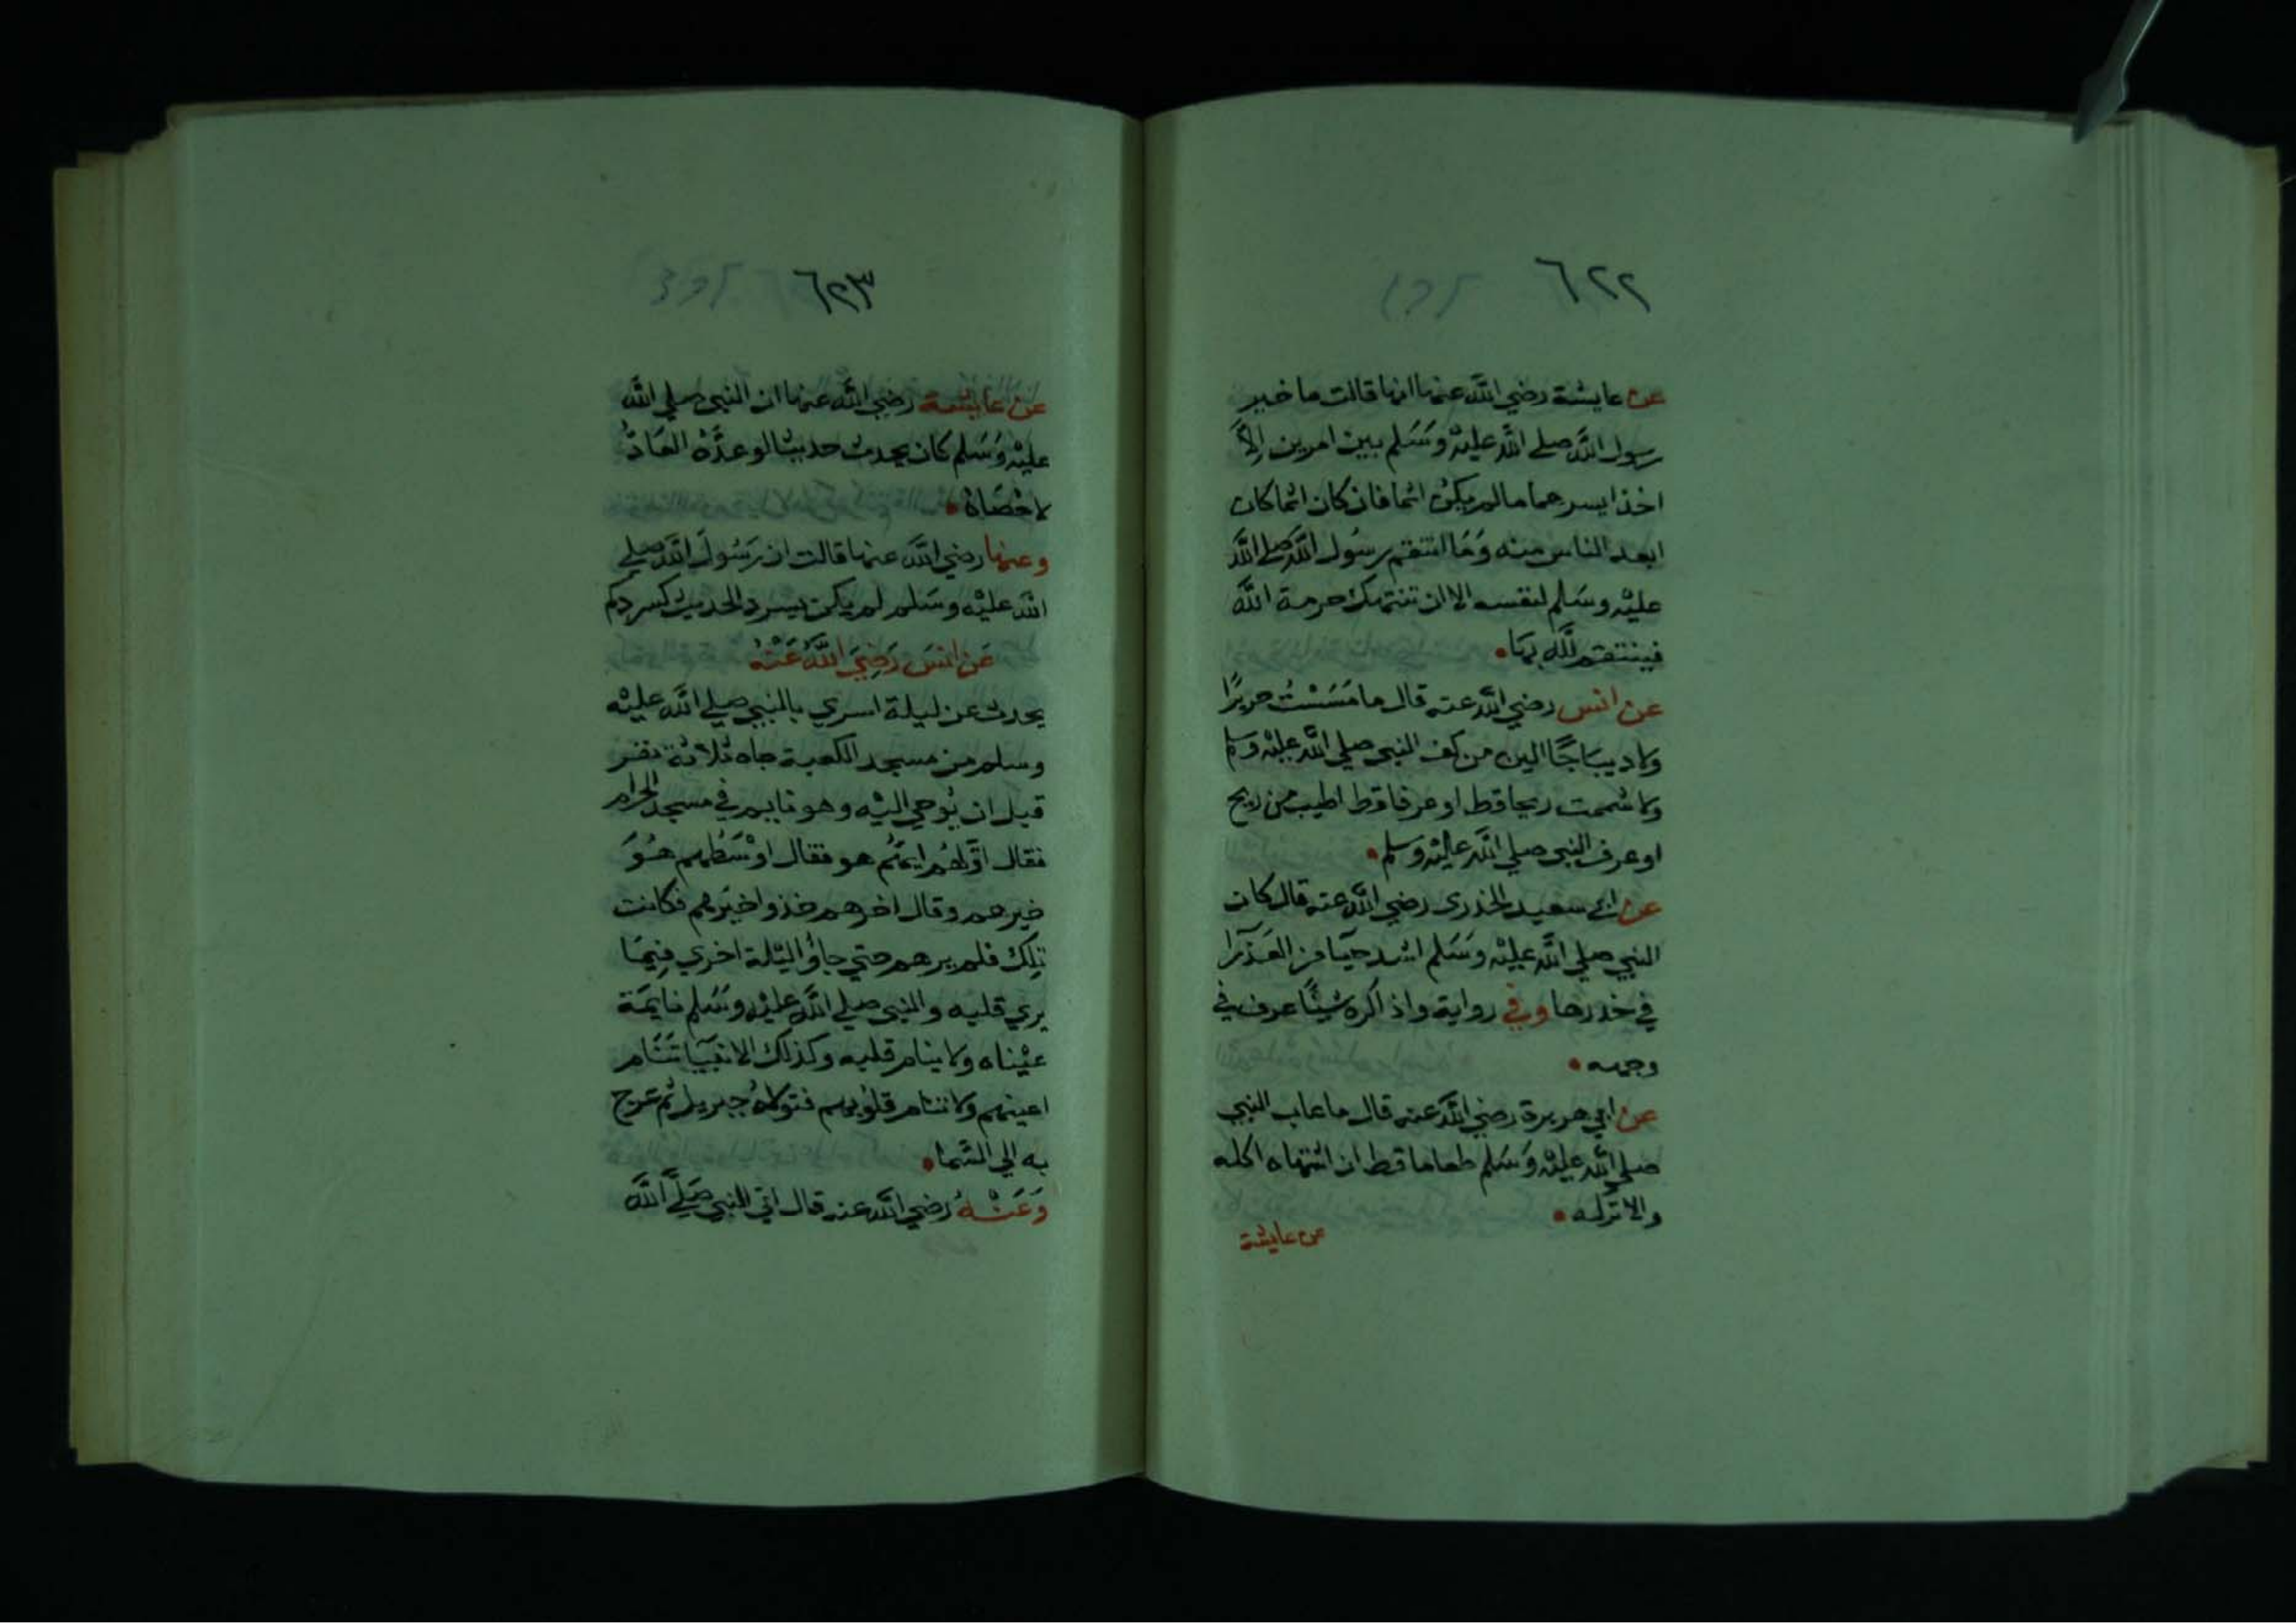 ٦٢٢
عن عايشة رضي الله عنها انها قالت ما خير
رسول الله صلي الله عليه وسلم بين امرين الا
اخذ ايسرهما ما لم يكن اثما فان كان اثما كان
ابعد الناس منه وما انتقم رسول الله صلي الله
عليه وسلم لنفسه الا ان تنتهك حرمة الله
فينتقم لله بها
عن انس رضي الله عنه قال ما مَسَسْتُ حريرًا
ولا ديباجًا الين من كف النبي صلي الله عليه وسلم
ولا شممت ريحا قط او عرفا قط اطيب من ريح
او عرف النبي صلي الله عليه وسلم
عن ابي سعيد الخذري رضي الله عنه قال كان
النبي صلي الله عليه وسلم اشد حيا من العذرا
في خدرها وفي رواية واذا كره شيئًا عرف في
وجهه
عن ابي هريرة رضي الله عنه قال ما عاب النبي
صلي الله عليه وسلم طعاما قط ان اشتهاه اكله
والا تركه
عن عايشة
٦٢٣
عن عايشة رضي الله عنها ان النبي صلي الله
عليه وسلم كان يحدث حديثا لو عدّه العادّ
لاحصاه
وعنها رضي الله عنها قالت ان رسول الله صلي
الله عليه وسلم لم يكن يسرد الحديث كسردكم
عَن انسَ رَضِيَ اللهُ عَنْهُ
يحدث عن ليلة اسري بالنبي صلي الله عليه
وسلم من مسجد الكعبة جاه ثلاثة نفر
قبل ان يُوحي اليه وهو نايم في مسجد الحرام
فقال اوّلهُم ايهُم هو فقال اوْسَطُهم هُوَ
خيرهم وقال اخرهم خذوا خيرهم فكانت
تِلك فلم يرهم حتي جاؤا ليلة اخري فيما
يري قلبه والنبي صلي الله عليه وسلم نايمة
عيْناه ولا ينام قلبه وكذلك الانبيا تنام
اعينهم ولا تنام قلوبهم فتولاهُ جبريل ثم عرج
به الي السّما
وَعَنْهُ رضي الله عنه قال اتي النبي صَلَّي الله